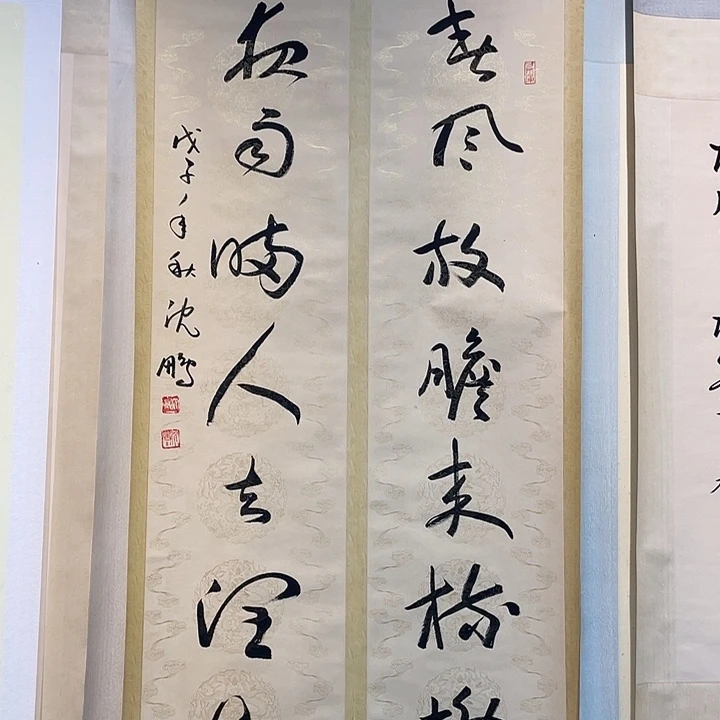 春风放胆来梳柳
夜雨瞒人去润
戊子年秋沈鹏